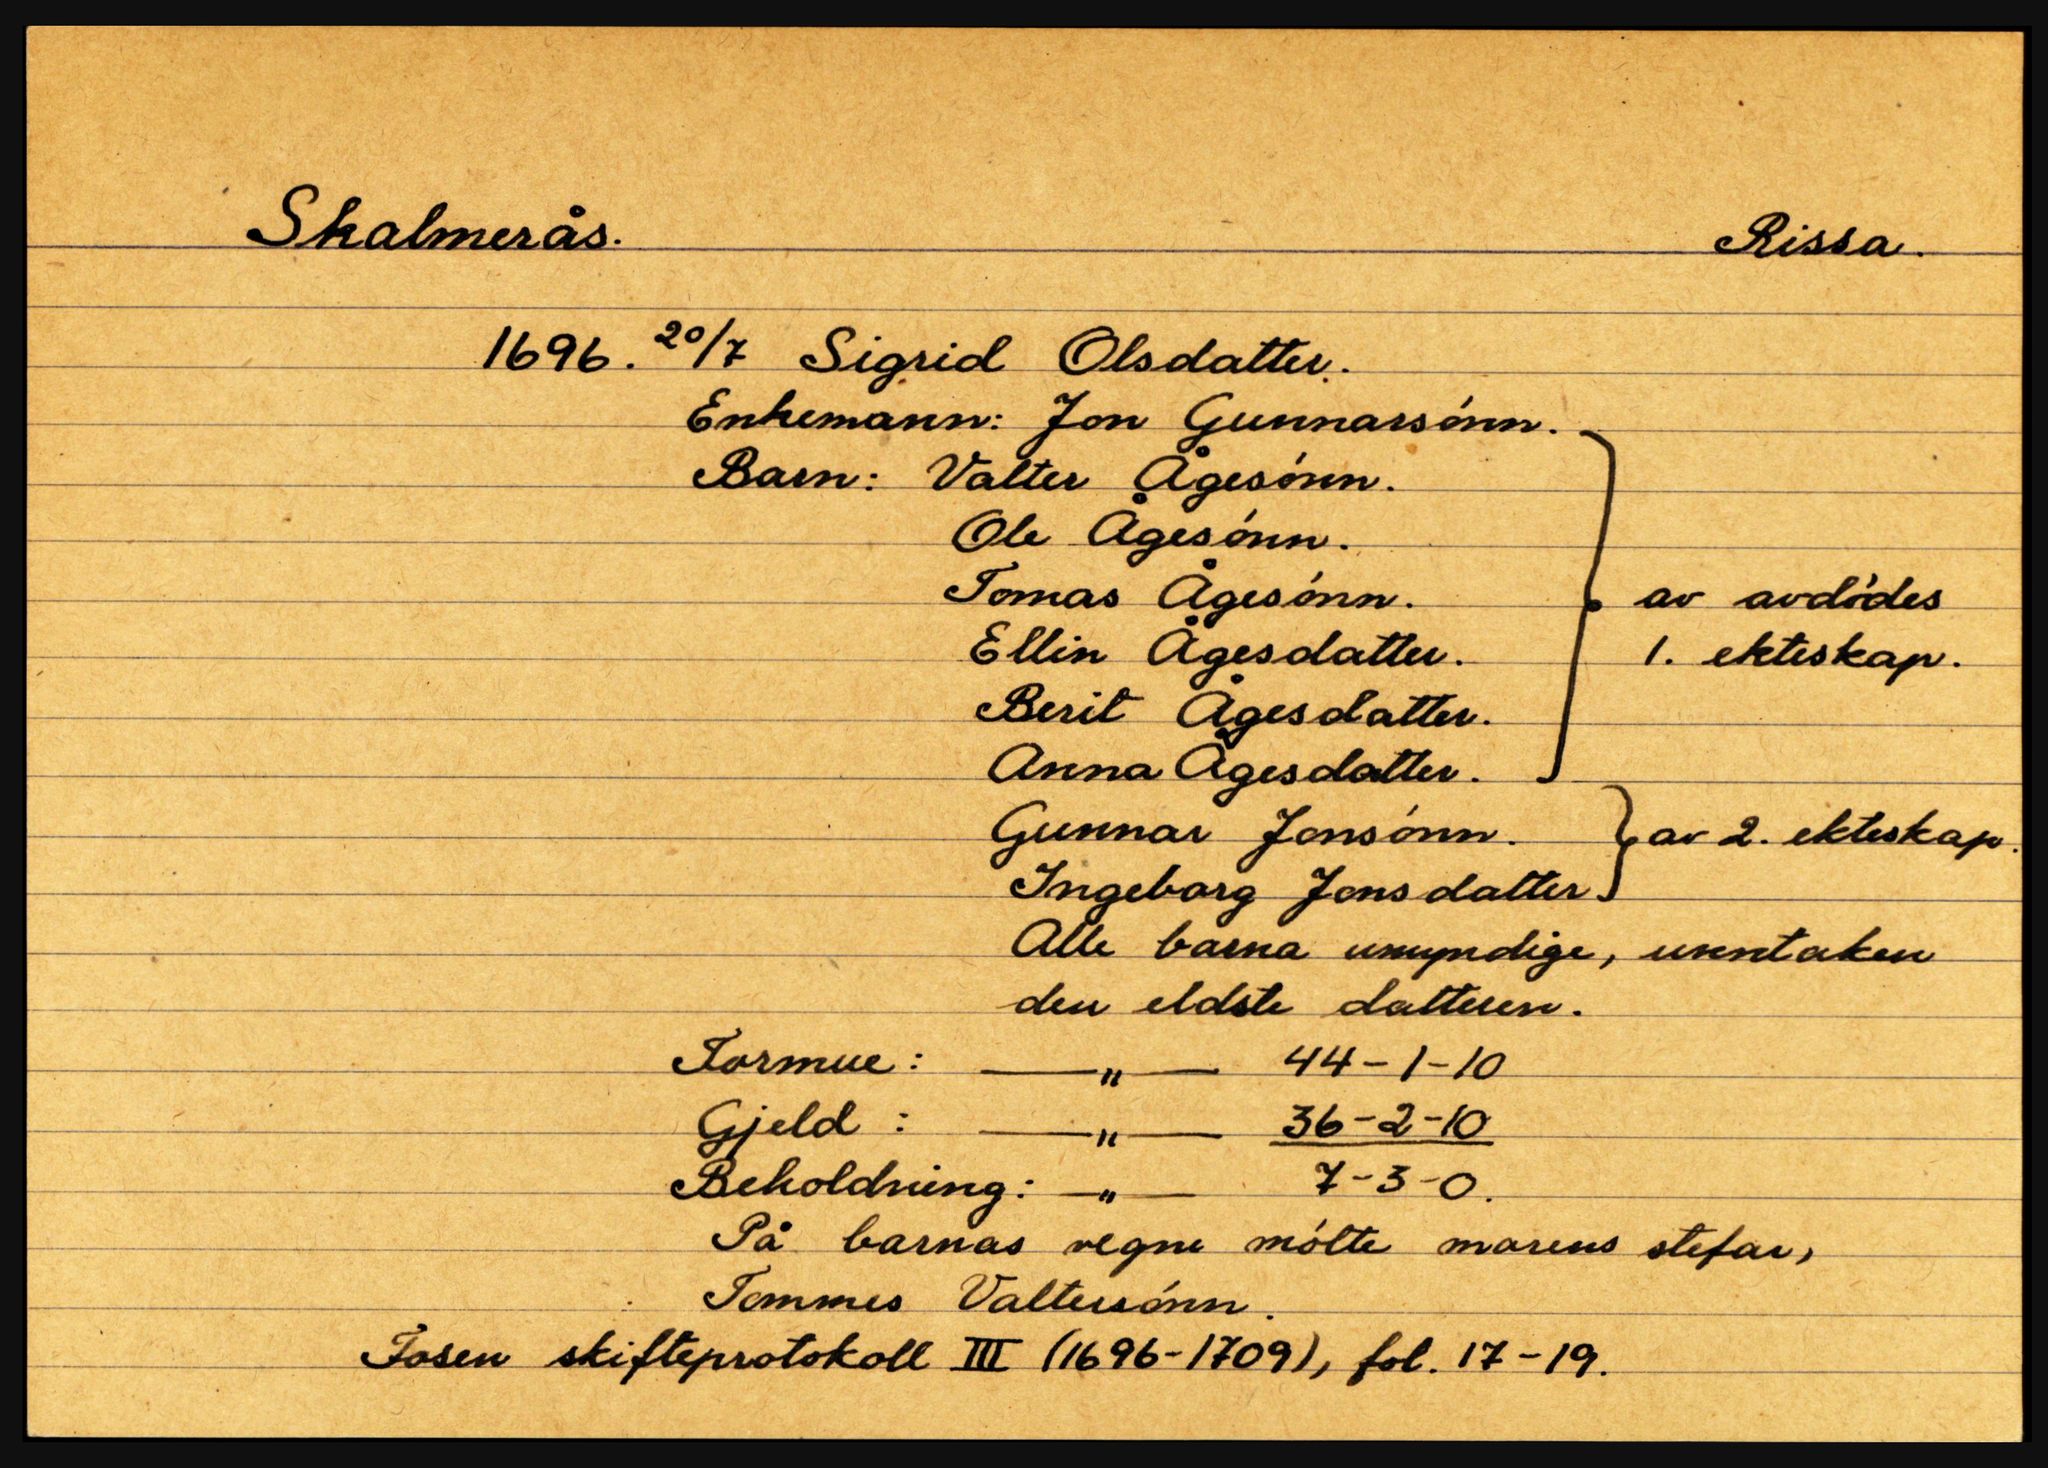 Skalmerås. Rissa.
1696. 20/7 Sigrid Olsdatter.
Enkemann: Jon Gunnarsónn.
Barn: Valter Ågesónn.
Ole Ågesónn.
Tomas Ågesónn. av avdódes
Ellin Ågesdatter. 1. ekteskap.
Berit Ågesdatter.
Anna Ågesdatter.
Gunnar Jonsónn. av 2. ekteskap.
Ingeborg Jonsdatter
Alle barna umyndige, unntaken
den eldste datteren.
Formue: —„— 44-1-10
Gjeld: —„— 36-2-10
Beholdning: —„— 7-3-0.
På barnas vegne mótte morens stefar,
Tommes Valtersónn.
Fosen skifteprotokoll III (1696-1709), fol. 17-19.